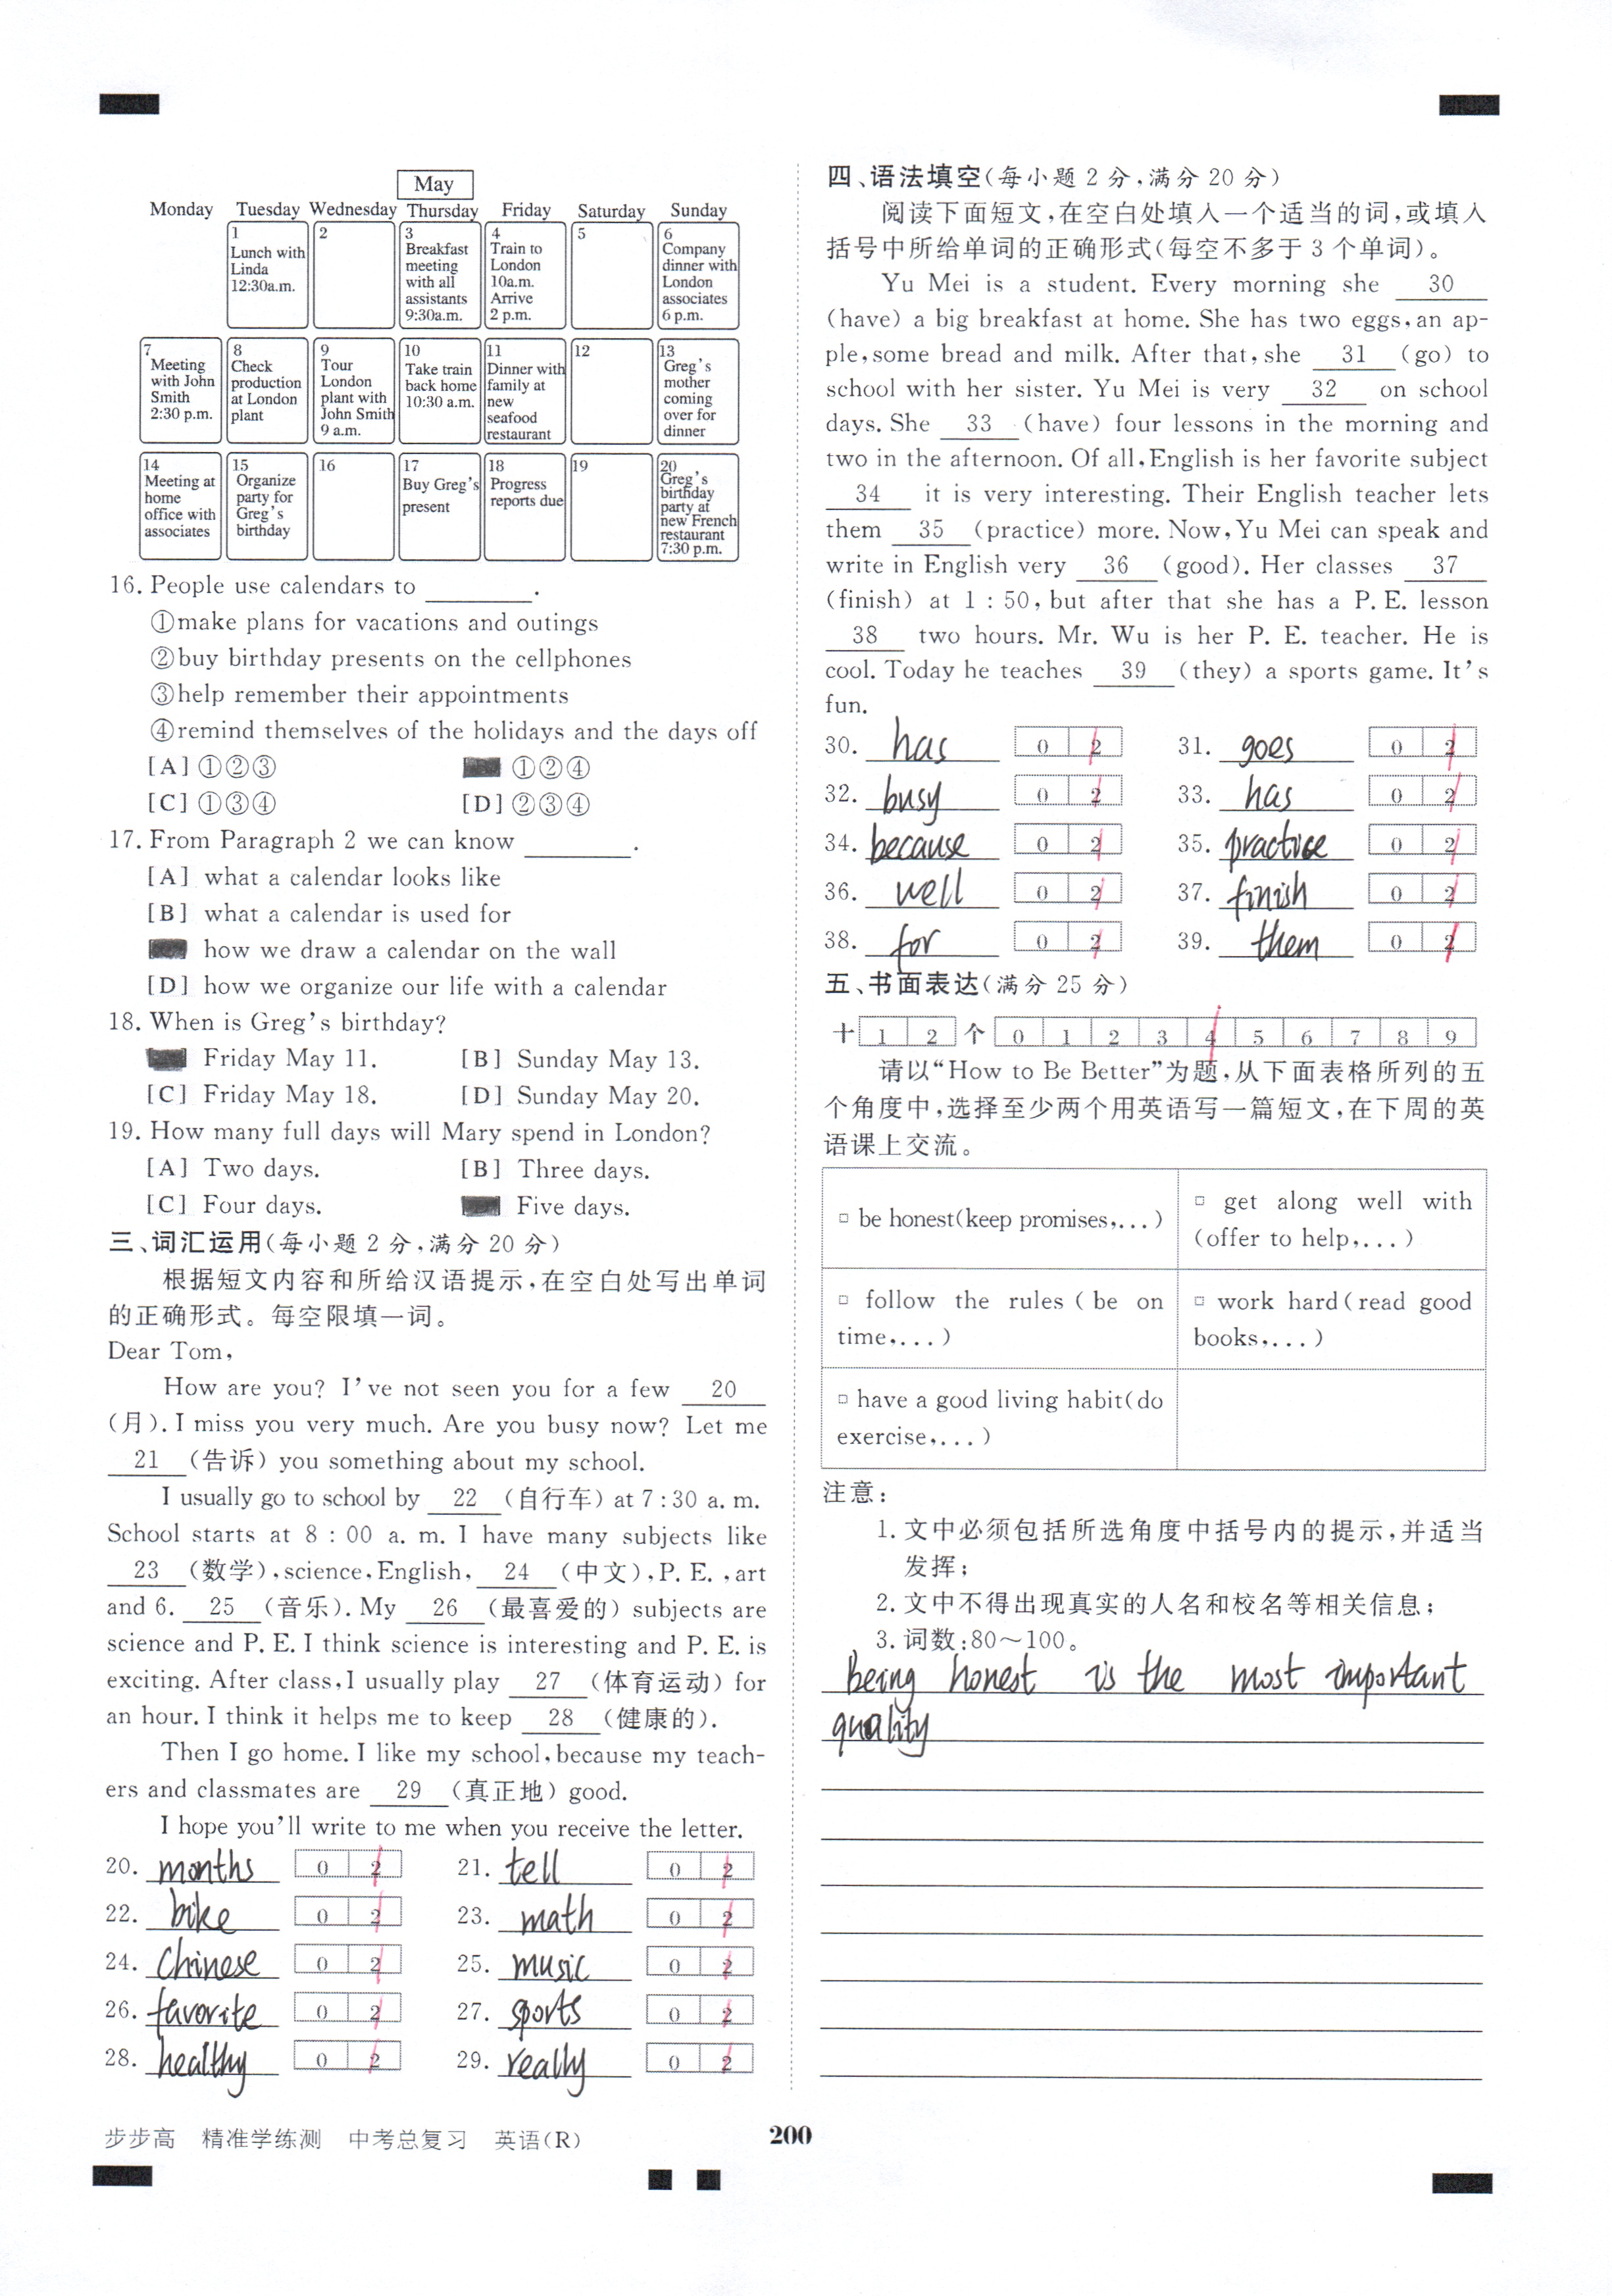 May
Monday Tuesday Wednesday Thursday Friday Saturday Sunday
1 Lunch with Linda 12:30a.m.
2
3 Breakfast meeting with all assistants 9:30a.m.
4 Train to London 10a.m. Arrive 2 p.m.
5
6 Company dinner with London associates 6 p.m.
7 Meeting with John Smith 2:30 p.m.
8 Check production at London plant
9 Tour London plant with John Smith 9 a.m.
10 Take train back home 10:30 a.m.
11 Dinner with family at new seafood restaurant
12
13 Greg's mother coming over for dinner
14 Meeting at home office with associates
15 Organize party for Greg's birthday
16
17 Buy Greg's present
18 Progress reports due
19
20 Greg's birthday party at new French restaurant 7:30 p.m.
16. People use calendars to ________.
①make plans for vacations and outings
②buy birthday presents on the cellphones
③help remember their appointments
④remind themselves of the holidays and the days off
[A] ①②③ ①②④
[C] ①③④ [D] ②③④
17. From Paragraph 2 we can know ________.
[A] what a calendar looks like
[B] what a calendar is used for
how we draw a calendar on the wall
[D] how we organize our life with a calendar
18. When is Greg's birthday?
Friday May 11. [B] Sunday May 13.
[C] Friday May 18. [D] Sunday May 20.
19. How many full days will Mary spend in London?
[A] Two days. [B] Three days.
[C] Four days. Five days.
三、词汇运用(每小题 2 分,满分 20 分)
根据短文内容和所给汉语提示,在空白处写出单词
的正确形式。每空限填一词。
Dear Tom,
How are you? I've not seen you for a few 20
(月). I miss you very much. Are you busy now? Let me
21 (告诉) you something about my school.
I usually go to school by 22 (自行车) at 7:30 a. m.
School starts at 8 : 00 a. m. I have many subjects like
23 (数学), science, English, 24 (中文), P. E. , art
and 6. 25 (音乐). My 26 (最喜爱的) subjects are
science and P. E. I think science is interesting and P. E. is
exciting. After class, I usually play 27 (体育运动) for
an hour. I think it helps me to keep 28 (健康的).
Then I go home. I like my school, because my teach-
ers and classmates are 29 (真正地) good.
I hope you'll write to me when you receive the letter.
20. months 0 2 21. tell 0 2
22. bike 0 2 23. math 0 2
24. Chinese 0 2 25. music 0 2
26. favorite 0 2 27. sports 0 2
28. healthy 0 2 29. really 0 2
四、语法填空(每小题 2 分,满分 20 分)
阅读下面短文,在空白处填入一个适当的词,或填入
括号中所给单词的正确形式(每空不多于 3 个单词)。
Yu Mei is a student. Every morning she 30
(have) a big breakfast at home. She has two eggs, an ap-
ple, some bread and milk. After that, she 31 (go) to
school with her sister. Yu Mei is very 32 on school
days. She 33 (have) four lessons in the morning and
two in the afternoon. Of all, English is her favorite subject
34 it is very interesting. Their English teacher lets
them 35 (practice) more. Now, Yu Mei can speak and
write in English very 36 (good). Her classes 37
(finish) at 1 : 50, but after that she has a P. E. lesson
38 two hours. Mr. Wu is her P. E. teacher. He is
cool. Today he teaches 39 (they) a sports game. It's
fun.
30. has 0 2 31. goes 0 2
32. busy 0 2 33. has 0 2
34. because 0 2 35. practice 0 2
36. well 0 2 37. finish 0 2
38. for 0 2 39. them 0 2
五、书面表达(满分 25 分)
十 1 2 个 0 1 2 3 4 5 6 7 8 9
请以"How to Be Better"为题,从下面表格所列的五
个角度中,选择至少两个用英语写一篇短文,在下周的英
语课上交流。
□ be honest(keep promises,...)
□ get along well with
(offer to help,...)
□ follow the rules ( be on
time,...)
□ work hard(read good
books,...)
□ have a good living habit(do
exercise,...)
注意:
1. 文中必须包括所选角度中括号内的提示,并适当
发挥;
2. 文中不得出现真实的人名和校名等相关信息;
3. 词数:80～100。
Being honest is the most important
quality
步步高 精准学练测 中考总复习 英语(R)
200